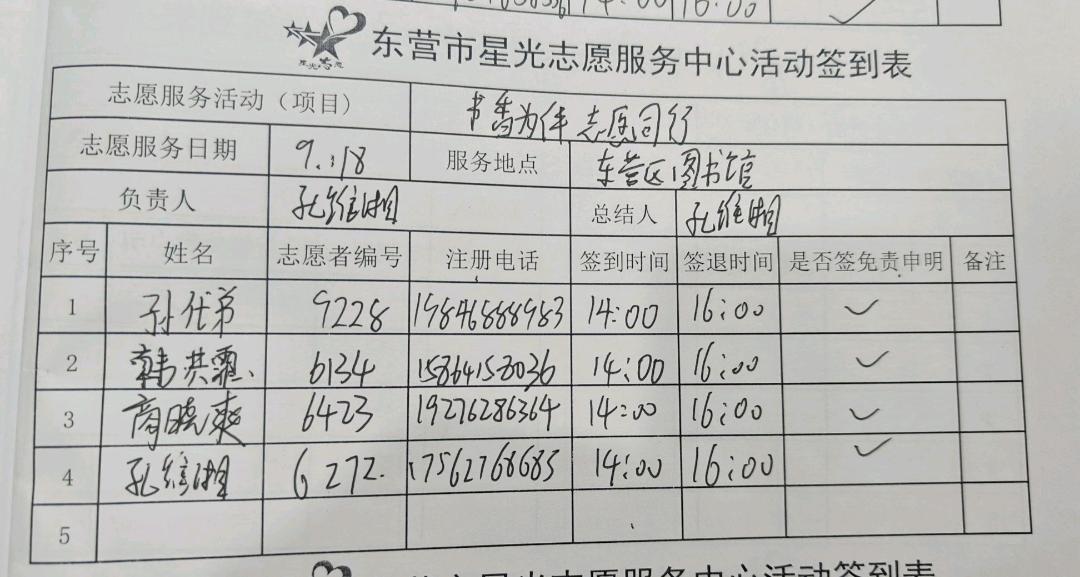 14:00 16:00
东营市星光志愿服务中心活动签到表
志愿服务活动（项目） 书香为伴 志愿同行
志愿服务日期 9.18 服务地点 东营区图书馆
负责人 孔维湘 总结人 孔维湘
序号 姓名 志愿者编号 注册电话 签到时间 签退时间 是否签免责申明 备注
1 孙代弟 9228 19846888983 14:00 16:00 ✓
2 韩洪霞 6134 15864158036 14:00 16:00 ✓
3 商晓爽 6423 19276286364 14:00 16:00 ✓
4 孔维湘 6272 17562768683 14:00 16:00 ✓
5
东营市星光志愿服务中心活动签到表